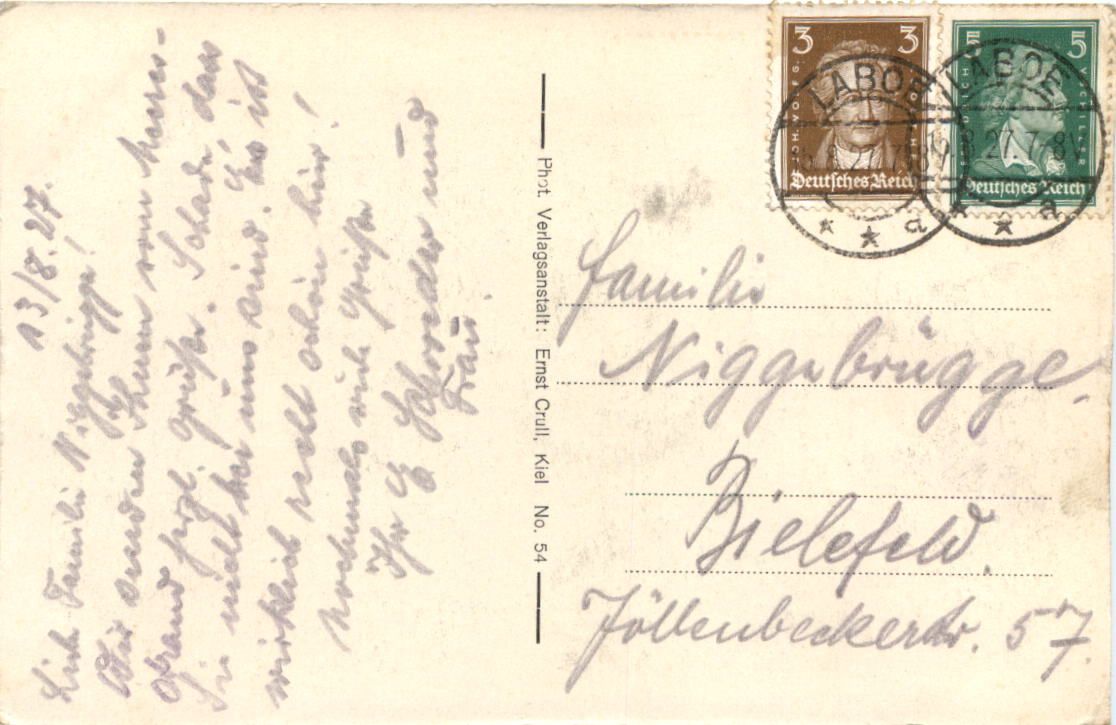 13/8. 27.
Liebe Familie Niggebrügge!
Wir senden Ihnen vom Meeres-
strand herzl. Grüße. Schade dass
Sie nicht bei uns sind. Es ist
wirklich recht schön hier!
Nochmals viele Grüße
Ihr
Schroeder und
Frau.
Phot. Verlagsanstalt: Ernst Crull, Kiel No. 54
3 3
JOH. WOLFG.
Deutsches Reich
5 5
V. SCHILLER
Deutsches Reich
LABOE
a
LABOE
.8.27.7-8V
a
Familie
Niggebrügge.
Bielefeld.
Jöllenbeckerstr. 57.